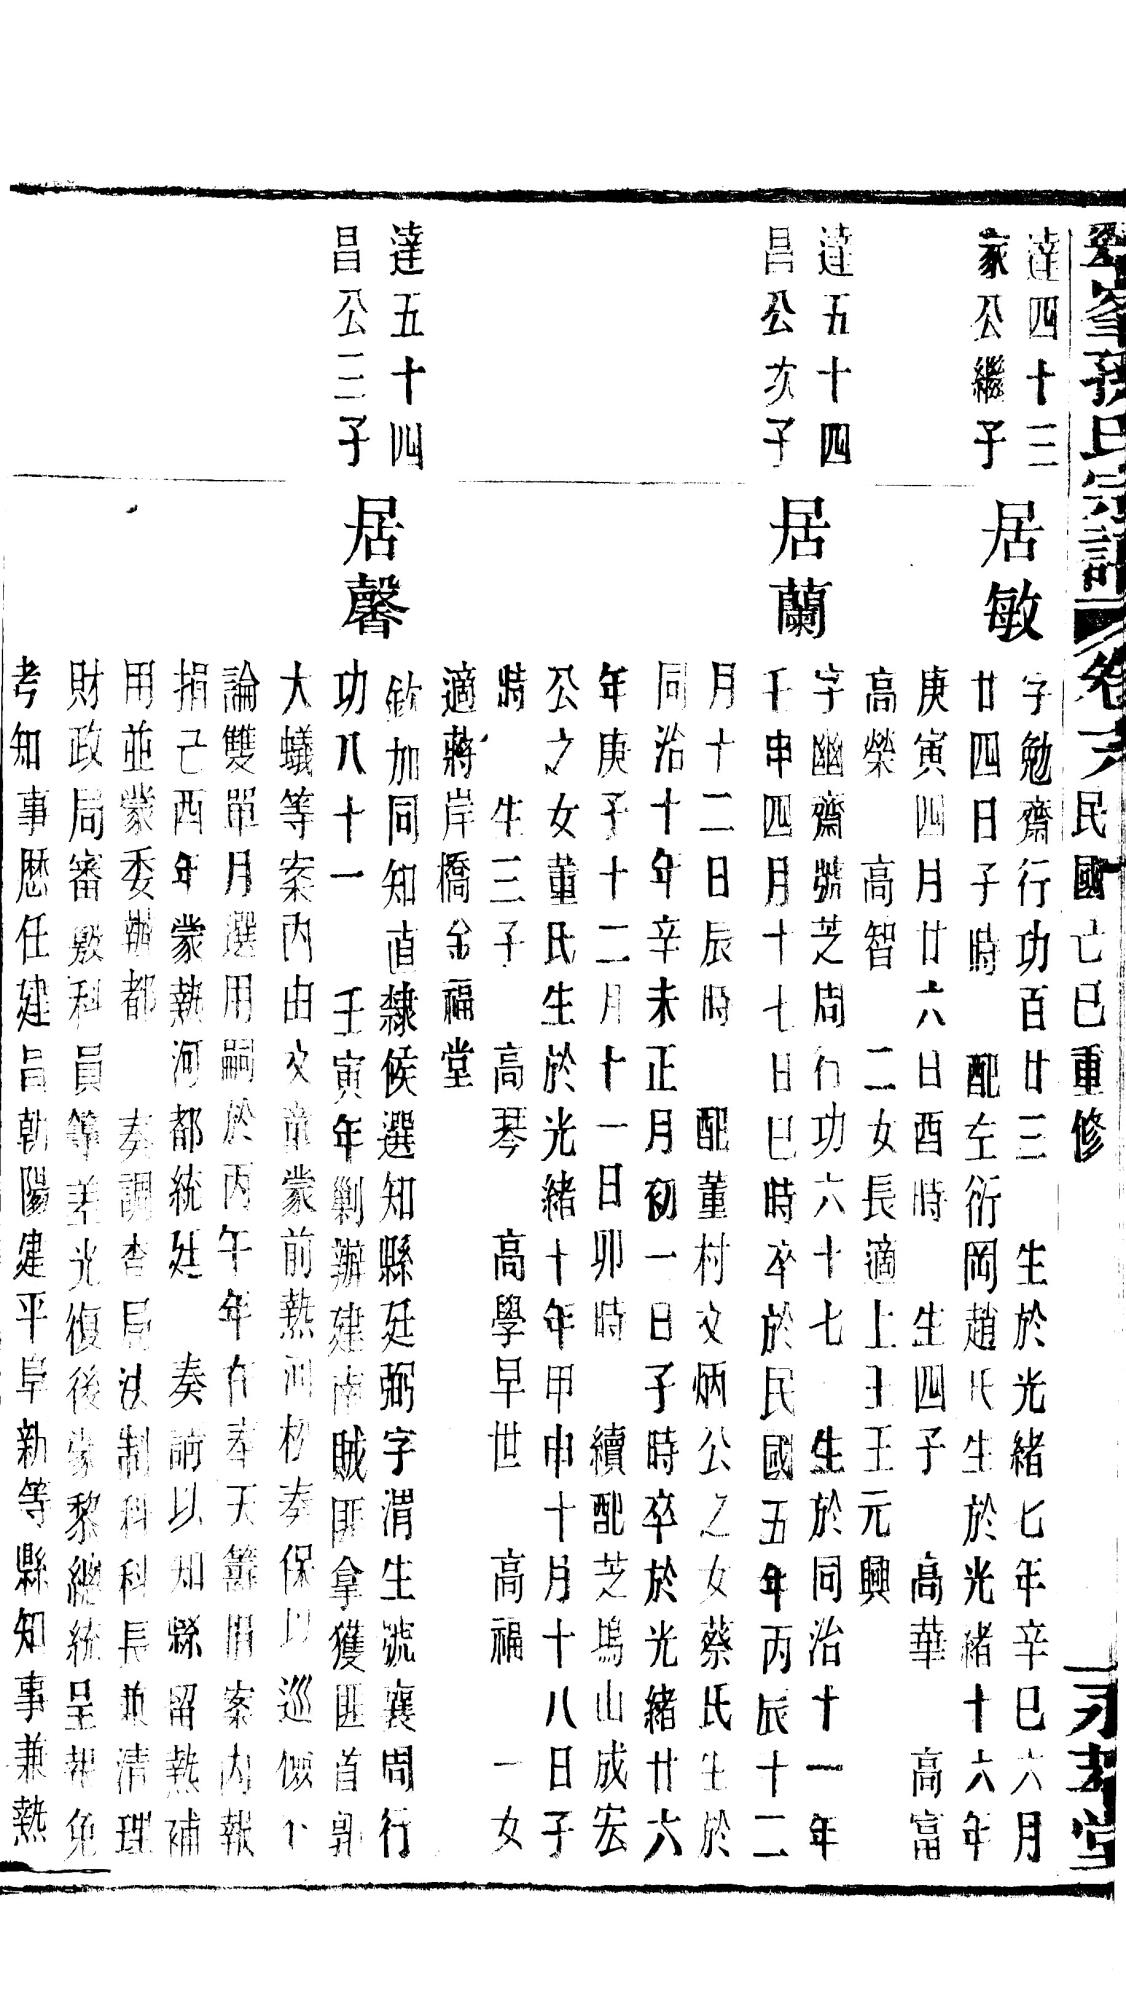 峯孫氏宗譜 卷六 民國己巳重修 永孝堂
達四十三
家公繼子
居敏
字勉齋行功百廿三 生於光緒七年辛巳六月
廿四日子時 配左衍岡趙氏生於光緒十六年
庚寅四月廿六日酉時 生四子 高華 高富
高榮 高智 二女長適上王王元興
達五十四
昌公次子
居蘭
字幽齋號芝周行功六十七 生於同治十一年
壬申四月十七日巳時卒於民國五年丙辰十二
月十二日辰時 配董村文炳公之女蔡氏生於
同治十年辛未正月初一日子時卒於光緒廿六
年庚子十二月十一日卯時 續配芝塢山成宏
公之女董氏生於光緒十年甲申十月十八日子
時 生三子 高琴 高學早世 高福 一女
適蔣岸橋金福堂
達五十四
昌公三子
居馨
欽加同知直隸候選知縣廷弼字渭生號襄周行
功八十一 壬寅年剿辦建南賊匪拿獲匪首郭
大蟻等案內由文童蒙前熱河松奏保以巡檢不
論雙單月選用嗣於丙午年在奉天籌捐案內報
捐己酉年蒙熱河都統廷 奏請以知縣留熱補
用並蒙委辦都 奏調查局法制科科長兼清理
財政局審覈科員等差光復後蒙黎總統呈報免
考知事歷任建昌朝陽建平阜新等縣知事兼熱